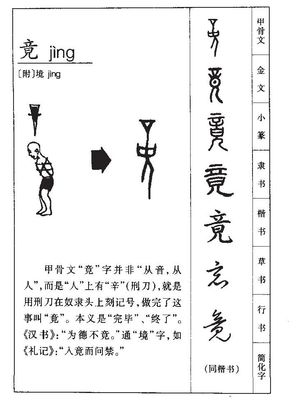 竟 jìng
〔附〕境 jìng
甲骨文“竟”字并非“从音，从
人”，而是“人”上有“辛”（刑刀），就是
用刑刀在奴隶头上刻记号，做完了这
事叫“竟”。本义是“完毕”、“终了”。
《汉书》：“为德不竟。”通“境”字，如
《礼记》：“入竟而问禁。”
竟
竟
竟
竟
竟
竟
竟
（同楷书）
甲骨文
金文
小篆
隶书
楷书
草书
行书
简化字